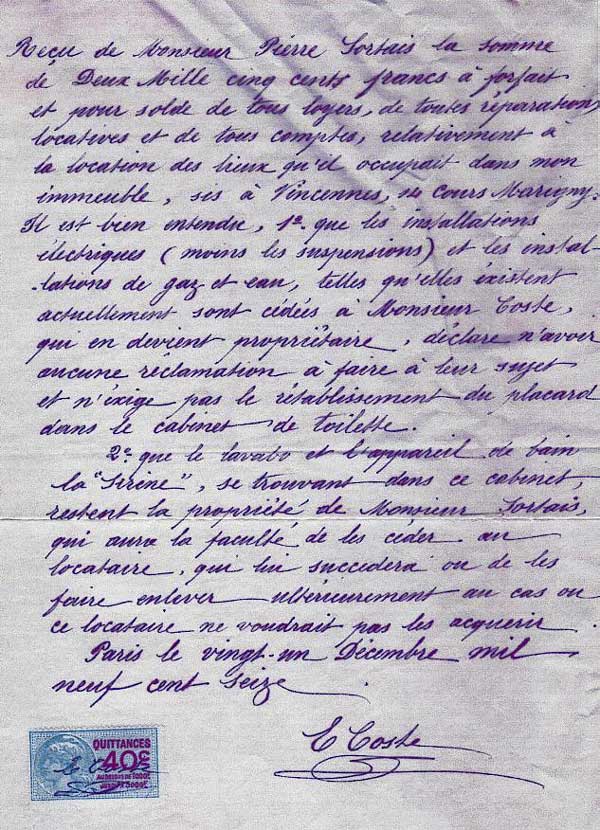 Reçu de Monsieur Pierre Sortais la somme
de Deux Mille cinq cents francs à forfait
et pour solde de tous loyers, de toutes réparations
locatives et de tous comptes, relativement à
la location des lieux qu'il occupait dans mon
immeuble, sis à Vincennes, 14 Cours Marigny.
Il est bien entendu, 1º que les installations
électriques (moins les suspensions) et les instal-
-lations de gaz et eau, telles qu'elles existent
actuellement sont cédées à Monsieur Coste,
qui en devient propriétaire, déclare n'avoir
aucune réclamation à faire à leur sujet
et n'exige pas le rétablissement du placard
dans le cabinet de toilette.
2º que le lavabo et l'appareil de bain
la "Sirène", se trouvant dans ce cabinet,
restent la propriété de Monsieur Sortais,
qui aura la faculté de les céder au
locataire, qui lui succédera ou de les
faire enlever ultérieurement au cas où
ce locataire ne voudrait pas les acquérir.
Paris le vingt-un Décembre mil
neuf cent seize
E Coste
QUITTANCES
40c
AU DESSUS DE 1000f
JUSQU'A 3000f
E Coste